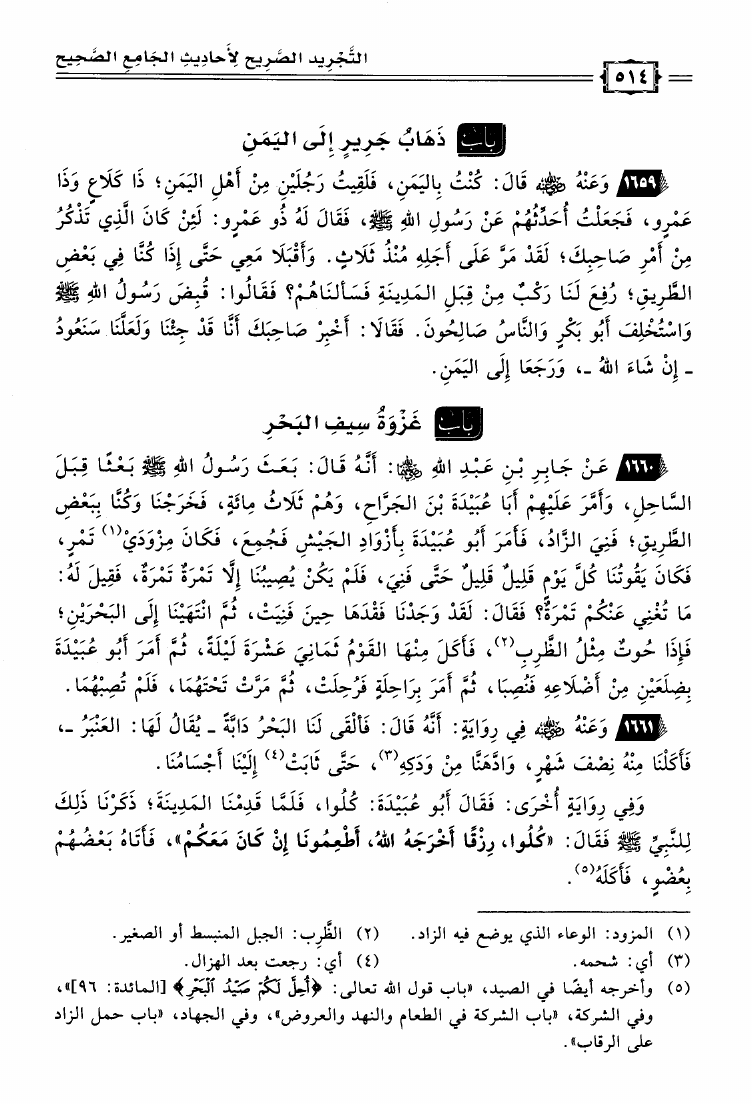 التَّجْرِيد الصَّرِيح لِأَحَادِيثِ الجَامِعِ الصَّحِيح
٥١٤
باب ذَهَابُ جَرِيرٍ إِلَى اليَمَنِ
١٦٥٩ وَعَنْهُ ﵁ قَالَ: كُنْتُ بِاليَمَنِ، فَلَقِيتُ رَجُلَيْنِ مِنْ أَهْلِ اليَمَنِ؛ ذَا كَلَاعٍ وَذَا
عَمْرٍو، فَجَعَلْتُ أُحَدِّثُهُمْ عَنْ رَسُولِ اللهِ ﷺ، فَقَالَ لَهُ ذُو عَمْرٍو: لَئِنْ كَانَ الَّذِي تَذْكُرُ
مِنْ أَمْرِ صَاحِبِكَ؛ لَقَدْ مَرَّ عَلَى أَجَلِهِ مُنْذُ ثَلَاثٍ. وَأَقْبَلَا مَعِي حَتَّى إِذَا كُنَّا فِي بَعْضِ
الطَّرِيقِ؛ رُفِعَ لَنَا رَكْبٌ مِنْ قِبَلِ المَدِينَةِ فَسَأَلْنَاهُمْ؟ فَقَالُوا: قُبِضَ رَسُولُ اللهِ ﷺ
وَاسْتُخْلِفَ أَبُو بَكْرٍ وَالنَّاسُ صَالِحُونَ. فَقَالَا: أَخْبِرْ صَاحِبَكَ أَنَّا قَدْ جِئْنَا وَلَعَلَّنَا سَنَعُودُ
ـ إِنْ شَاءَ اللهُ ـ، وَرَجَعَا إِلَى اليَمَنِ.
باب غَزْوَةُ سِيفِ البَحْرِ
١٦٦٠ عَنْ جَابِرِ بْنِ عَبْدِ اللهِ ﵄: أَنَّهُ قَالَ: بَعَثَ رَسُولُ اللهِ ﷺ بَعْثًا قِبَلَ
السَّاحِلِ، وَأَمَّرَ عَلَيْهِمْ أَبَا عُبَيْدَةَ بْنَ الجَرَّاحِ، وَهُمْ ثَلَاثُ مِائَةٍ، فَخَرَجْنَا وَكُنَّا بِبَعْضِ
الطَّرِيقِ؛ فَنِيَ الزَّادُ، فَأَمَرَ أَبُو عُبَيْدَةَ بِأَزْوَادِ الجَيْشِ فَجُمِعَ، فَكَانَ مِزْوَدَيْ(١) تَمْرٍ،
فَكَانَ يَقُوتُنَا كُلَّ يَوْمٍ قَلِيلٌ قَلِيلٌ حَتَّى فَنِيَ، فَلَمْ يَكُنْ يُصِيبُنَا إِلَّا تَمْرَةٌ تَمْرَةٌ، فَقِيلَ لَهُ:
مَا تُغْنِي عَنْكُمْ تَمْرَةٌ؟ فَقَالَ: لَقَدْ وَجَدْنَا فَقْدَهَا حِينَ فَنِيَتْ، ثُمَّ انْتَهَيْنَا إِلَى البَحْرَيْنِ؛
فَإِذَا حُوتٌ مِثْلُ الظَّرِبِ(٢)، فَأَكَلَ مِنْهَا القَوْمُ ثَمَانِيَ عَشْرَةَ لَيْلَةً، ثُمَّ أَمَرَ أَبُو عُبَيْدَةَ
بِضِلَعَيْنِ مِنْ أَضْلَاعِهِ فَنُصِبَا، ثُمَّ أَمَرَ بِرَاحِلَةٍ فَرُحِلَتْ، ثُمَّ مَرَّتْ تَحْتَهُمَا، فَلَمْ تُصِبْهُمَا.
١٦٦١ وَعَنْهُ ﵁ فِي رِوَايَةٍ: أَنَّهُ قَالَ: فَأَلْقَى لَنَا البَحْرُ دَابَّةً ـ يُقَالُ لَهَا: العَنْبَرُ ـ،
فَأَكَلْنَا مِنْهُ نِصْفَ شَهْرٍ، وَادَّهَنَّا مِنْ وَدَكِهِ(٣)، حَتَّى ثَابَتْ(٤) إِلَيْنَا أَجْسَامُنَا.
وَفِي رِوَايَةٍ أُخْرَى: فَقَالَ أَبُو عُبَيْدَةَ: كُلُوا، فَلَمَّا قَدِمْنَا المَدِينَةَ؛ ذَكَرْنَا ذَلِكَ
لِلنَّبِيِّ ﷺ فَقَالَ: «كُلُوا، رِزْقًا أَخْرَجَهُ اللهُ، أَطْعِمُونَا إِنْ كَانَ مَعَكُمْ»، فَأَتَاهُ بَعْضُهُمْ
بِعُضْوٍ، فَأَكَلَهُ(٥).
(١) المزود: الوعاء الذي يوضع فيه الزاد. (٢) الظَّرِب: الجبل المنبسط أو الصغير.
(٣) أي: شحمه. (٤) أي: رجعت بعد الهزال.
(٥) وأخرجه أيضًا في الصيد، «باب قول الله تعالى: ﴿أُحِلَّ لَكُمْ صَيْدُ ٱلْبَحْرِ﴾ [المائدة: ٩٦]»،
وفي الشركة، «باب الشركة في الطعام والنهد والعروض»، وفي الجهاد، «باب حمل الزاد
على الرقاب».